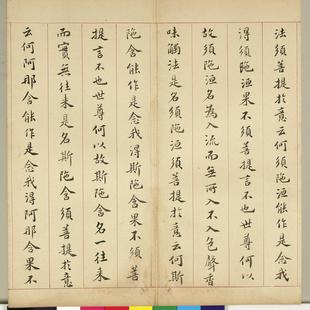 法須菩提於意云何須陁洹能作是念我
得須陁洹果不須菩提言不也世尊何以
故須陁洹名為入流而無所入不入色聲香
味觸法是名須陁洹須菩提於意云何斯
陁含能作是念我得斯陁含果不須菩
提言不也世尊何以故斯陁含名一往来
而實無往来是名斯陁含須菩提於意
云何阿那含能作是念我得阿那含果不